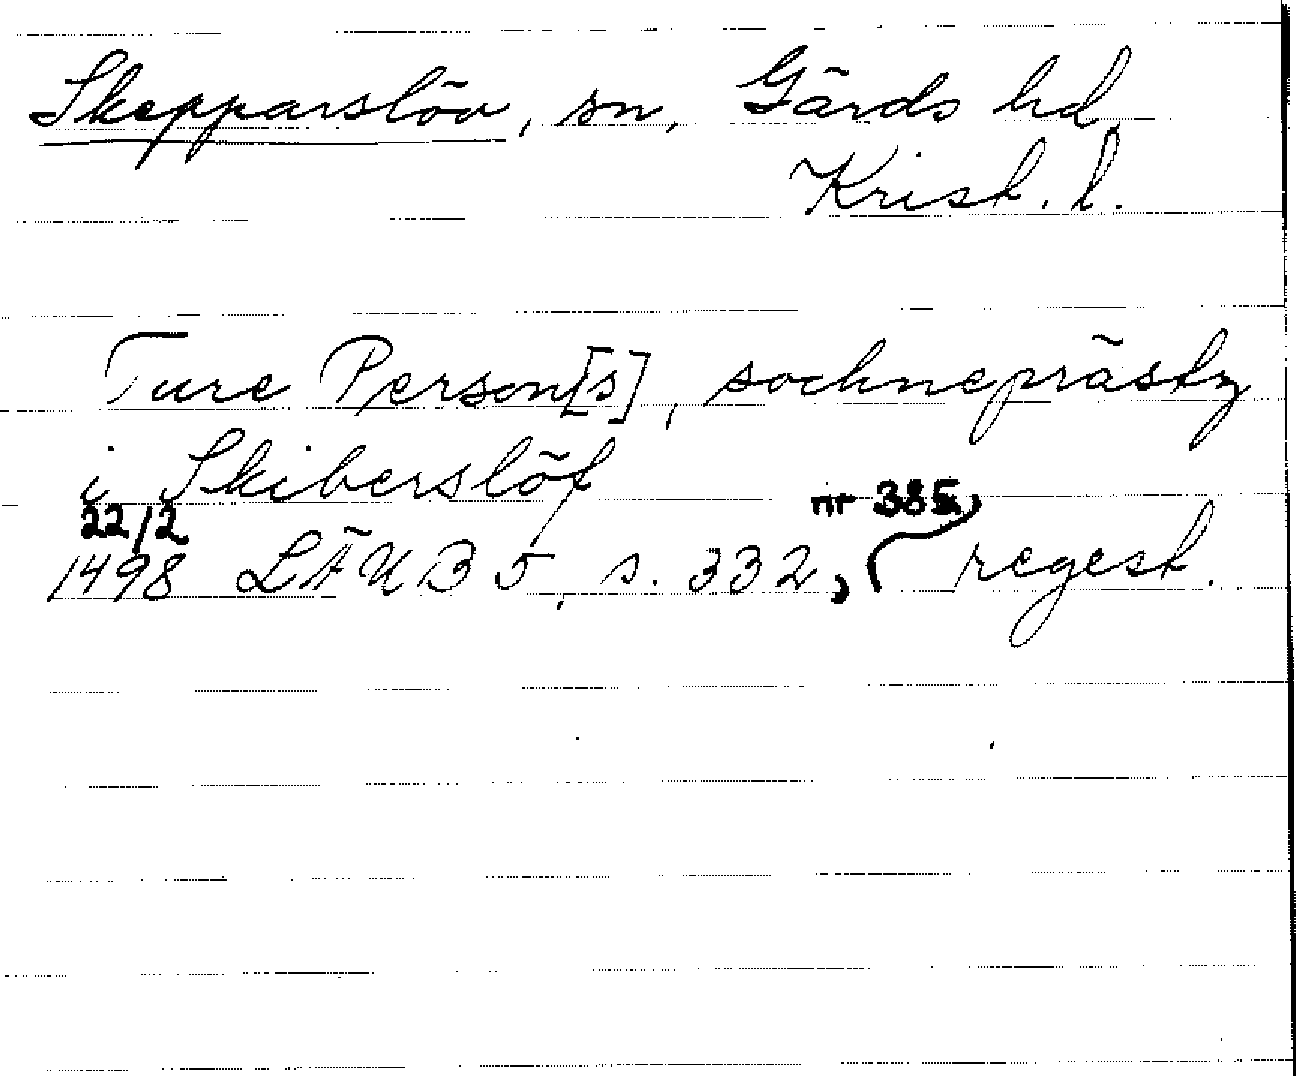 Skepparslöv, sn, Gärds hd,
Krist. l.
Ture Person[s], sochneprästz
i Skiberslöf
22/2 nr 385,
1498 LÄUB 5, s. 332, regest.